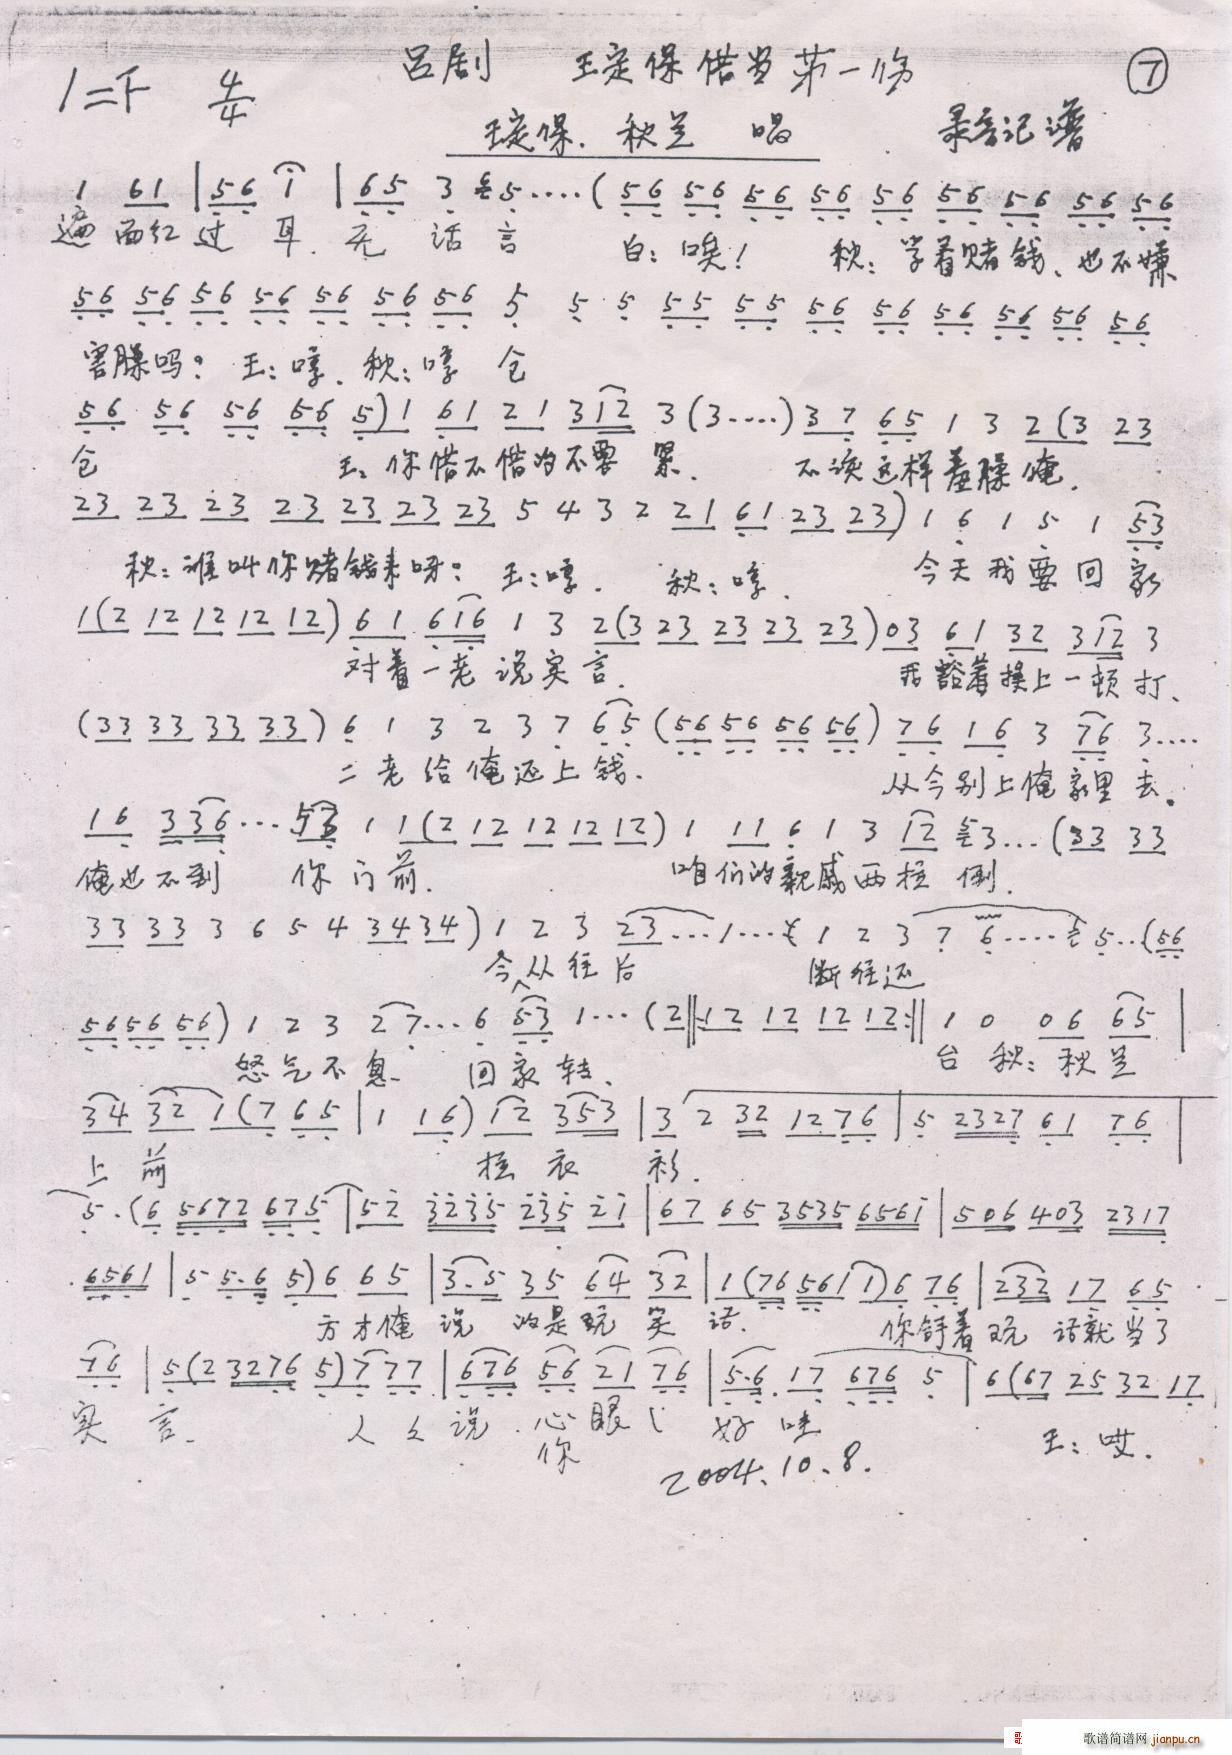 吕剧 王定保借当第一场 ⑦
1=F 4/4
王定保. 秋兰 唱 录音记谱
1 61 | 56 i | 65 3 5····( 56 56 56 56 56 56 56 56 56
遍面红过耳. 无话言 白: 唉! 秋: 学着赌钱、也不嫌
56 56 56 56 56 56 56 5 5 5 55 55 56 56 56 56 56 56
害臊吗? 王: 哼. 秋: 哼 仓
56 56 56 56 5) 1 61 21 312 3 (3····) 37 65 1 3 2(3 23
仓 王: 你借不借的不要紧. 不该这样羞臊俺.
23 23 23 23 23 23 23 5 4 3 2 21 61 23 23) 1 6 1 5 1 53
秋: 谁叫你赌钱来呀? 王: 哼. 秋: 哼. 今天我要回家
1(2 12 12 12 12) 61 616 1 3 2(3 23 23 23 23) 03 61 32 312 3
对着二老说实言. 我豁着挨上一顿打、
(33 33 33 33) 6 1 3 2 3 7 65 (56 56 56 56) 76 16 3 76 3····
二老给俺还上钱. 从今别上俺家里去。
16 336··· 53 1 1(2 12 12 12 12) 1 11 6 1 3 12 3···(33 33
俺也不到 你门前. 咱们的亲戚两拉倒.
33 33 3 6 5 4 34 34) 1 2 3 23···1··· 1 2 3 7 6···· 5··(56
今从往后 断往还
56 56 56) 1 2 3 27··· 6 53 1···(2‖:12 12 12 12:‖ 1 0 06 65 |
怒气不息 回家转、 台 秋: 秋兰
34 32 1(7 65 | 1 16) 12 353 | 3 2 32 12 76 | 5 2327 61 76 |
上前 拉衣衫.
5·(6 5672 675 | 52 3235 235 21 | 67 65 3535 6561 | 506 403 2317
6561 | 5 5·6 5) 6 65 | 3·5 35 64 32 | 1(76 561 1) 6 76 | 232 17 65
方才俺说的是玩笑话. 你舒着玩话就当了
76 | 5(2 3276 5) 7 77 | 676 56 21 76 | 5·6 17 676 5 | 6(67 25 32 17
实言. 人人说 心眼 好哇 王: 哎.
你
2004.10.8.
歌谱简谱网 jianpu.cn